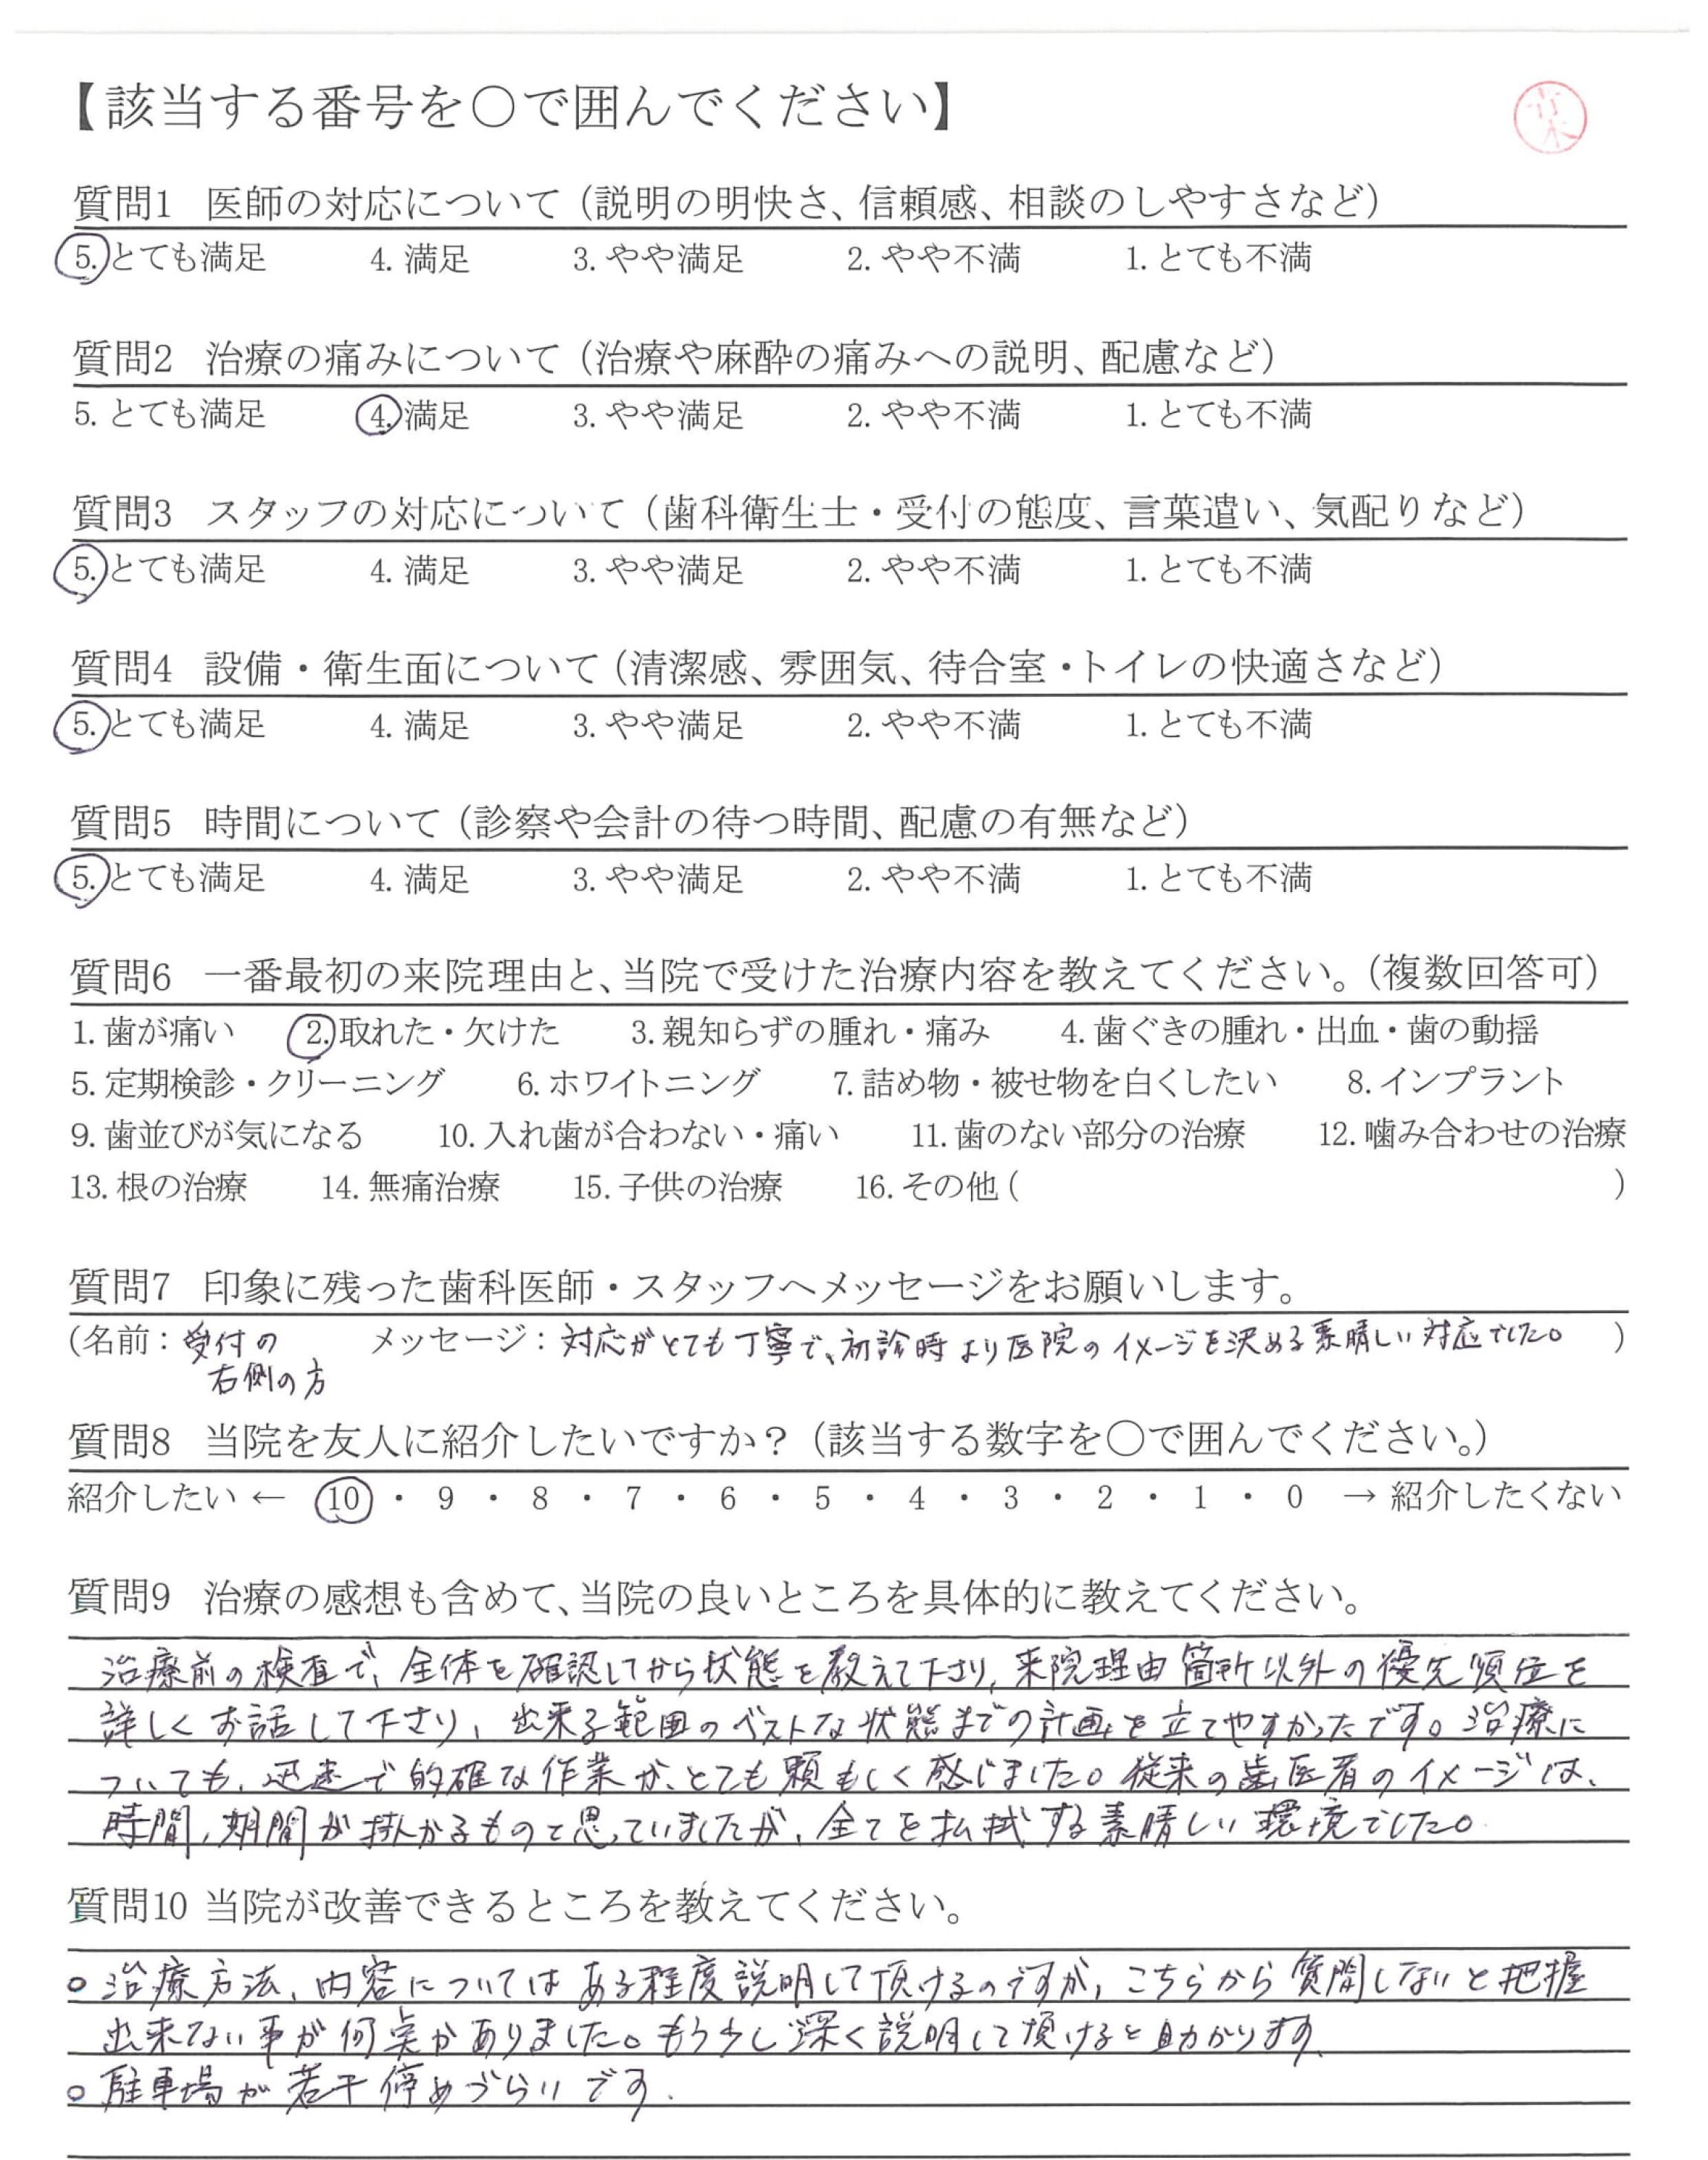 【該当する番号を○で囲んでください】
質問1 医師の対応について（説明の明快さ、信頼感、相談のしやすさなど）
5. とても満足 4. 満足 3. やや満足 2. やや不満 1. とても不満
質問2 治療の痛みについて（治療や麻酔の痛みへの説明、配慮など）
5. とても満足 4. 満足 3. やや満足 2. やや不満 1. とても不満
質問3 スタッフの対応について（歯科衛生士・受付の態度、言葉遣い、気配りなど）
5. とても満足 4. 満足 3. やや満足 2. やや不満 1. とても不満
質問4 設備・衛生面について（清潔感、雰囲気、待合室・トイレの快適さなど）
5. とても満足 4. 満足 3. やや満足 2. やや不満 1. とても不満
質問5 時間について（診察や会計の待つ時間、配慮の有無など）
5. とても満足 4. 満足 3. やや満足 2. やや不満 1. とても不満
質問6 一番最初の来院理由と、当院で受けた治療内容を教えてください。（複数回答可）
1. 歯が痛い 2. 取れた・欠けた 3. 親知らずの腫れ・痛み 4. 歯ぐきの腫れ・出血・歯の動揺
5. 定期検診・クリーニング 6. ホワイトニング 7. 詰め物・被せ物を白くしたい 8. インプラント
9. 歯並びが気になる 10. 入れ歯が合わない・痛い 11. 歯のない部分の治療 12. 噛み合わせの治療
13. 根の治療 14. 無痛治療 15. 子供の治療 16. その他（ ）
質問7 印象に残った歯科医師・スタッフへメッセージをお願いします。
（名前：受付の メッセージ：対応がとても丁寧で、初診時より医院のイメージを決める素晴しい対応でした。）
右側の方
質問8 当院を友人に紹介したいですか？（該当する数字を○で囲んでください。）
紹介したい ← 10 ・ 9 ・ 8 ・ 7 ・ 6 ・ 5 ・ 4 ・ 3 ・ 2 ・ 1 ・ 0 → 紹介したくない
質問9 治療の感想も含めて、当院の良いところを具体的に教えてください。
治療前の検査で、全体を確認してから状態を教えて下さり、来院理由箇所以外の優先順位を
詳しくお話して下さり、出来る範囲のベストな状態までの計画を立てやすかったです。治療に
ついても、迅速で的確な作業が、とても頼もしく感じました。従来の歯医者のイメージは、
時間、期間が掛かるものと思っていましたが、全てを払拭する素晴しい環境でした。
質問10 当院が改善できるところを教えてください。
○治療方法、内容についてはある程度説明して頂けるのですが、こちらから質問しないと把握
出来ない事が何点かありました。もう少し深く説明して頂けると助かります。
○駐車場が若干停めづらいです。